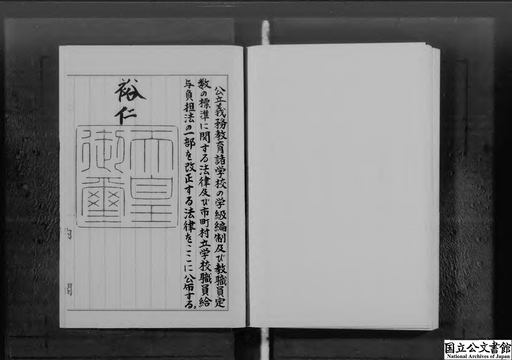 公立義務教育諸学校の学級編制及び教職員定
数の標準に関する法律及び市町村立学校職員給
与負担法の一部を改正する法律をここに公布する。
裕仁
天皇
御璽
国立公文書館
National Archives of Japan